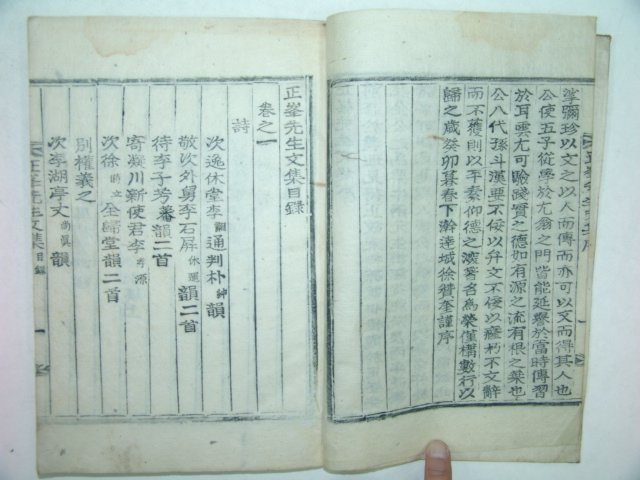 掌彌珍以文之以人而傳而亦可以文而得其人也
公使五子從學於尤翁之門皆能延譽於當時傳習
於耳雲尤可驗踐實之德如有源之流有根之葉也
公八代孫斗漢要不佞以弁文不佞以癃朽不文辭
而不獲則以平素仰德之深著名為榮僅構數行以
歸之歲癸卯暮春下澣達城徐贊奎謹序
正峯先生文集目錄
卷之一
詩
次逸休堂李 通判朴 韻
敬次外舅李石屏 韻二首
待李子芳 韻二首
寄凝川新使君李
次徐 全歸堂韻二首
別權義之
次李湖亭丈 韻
正峯先生文集 目錄 一